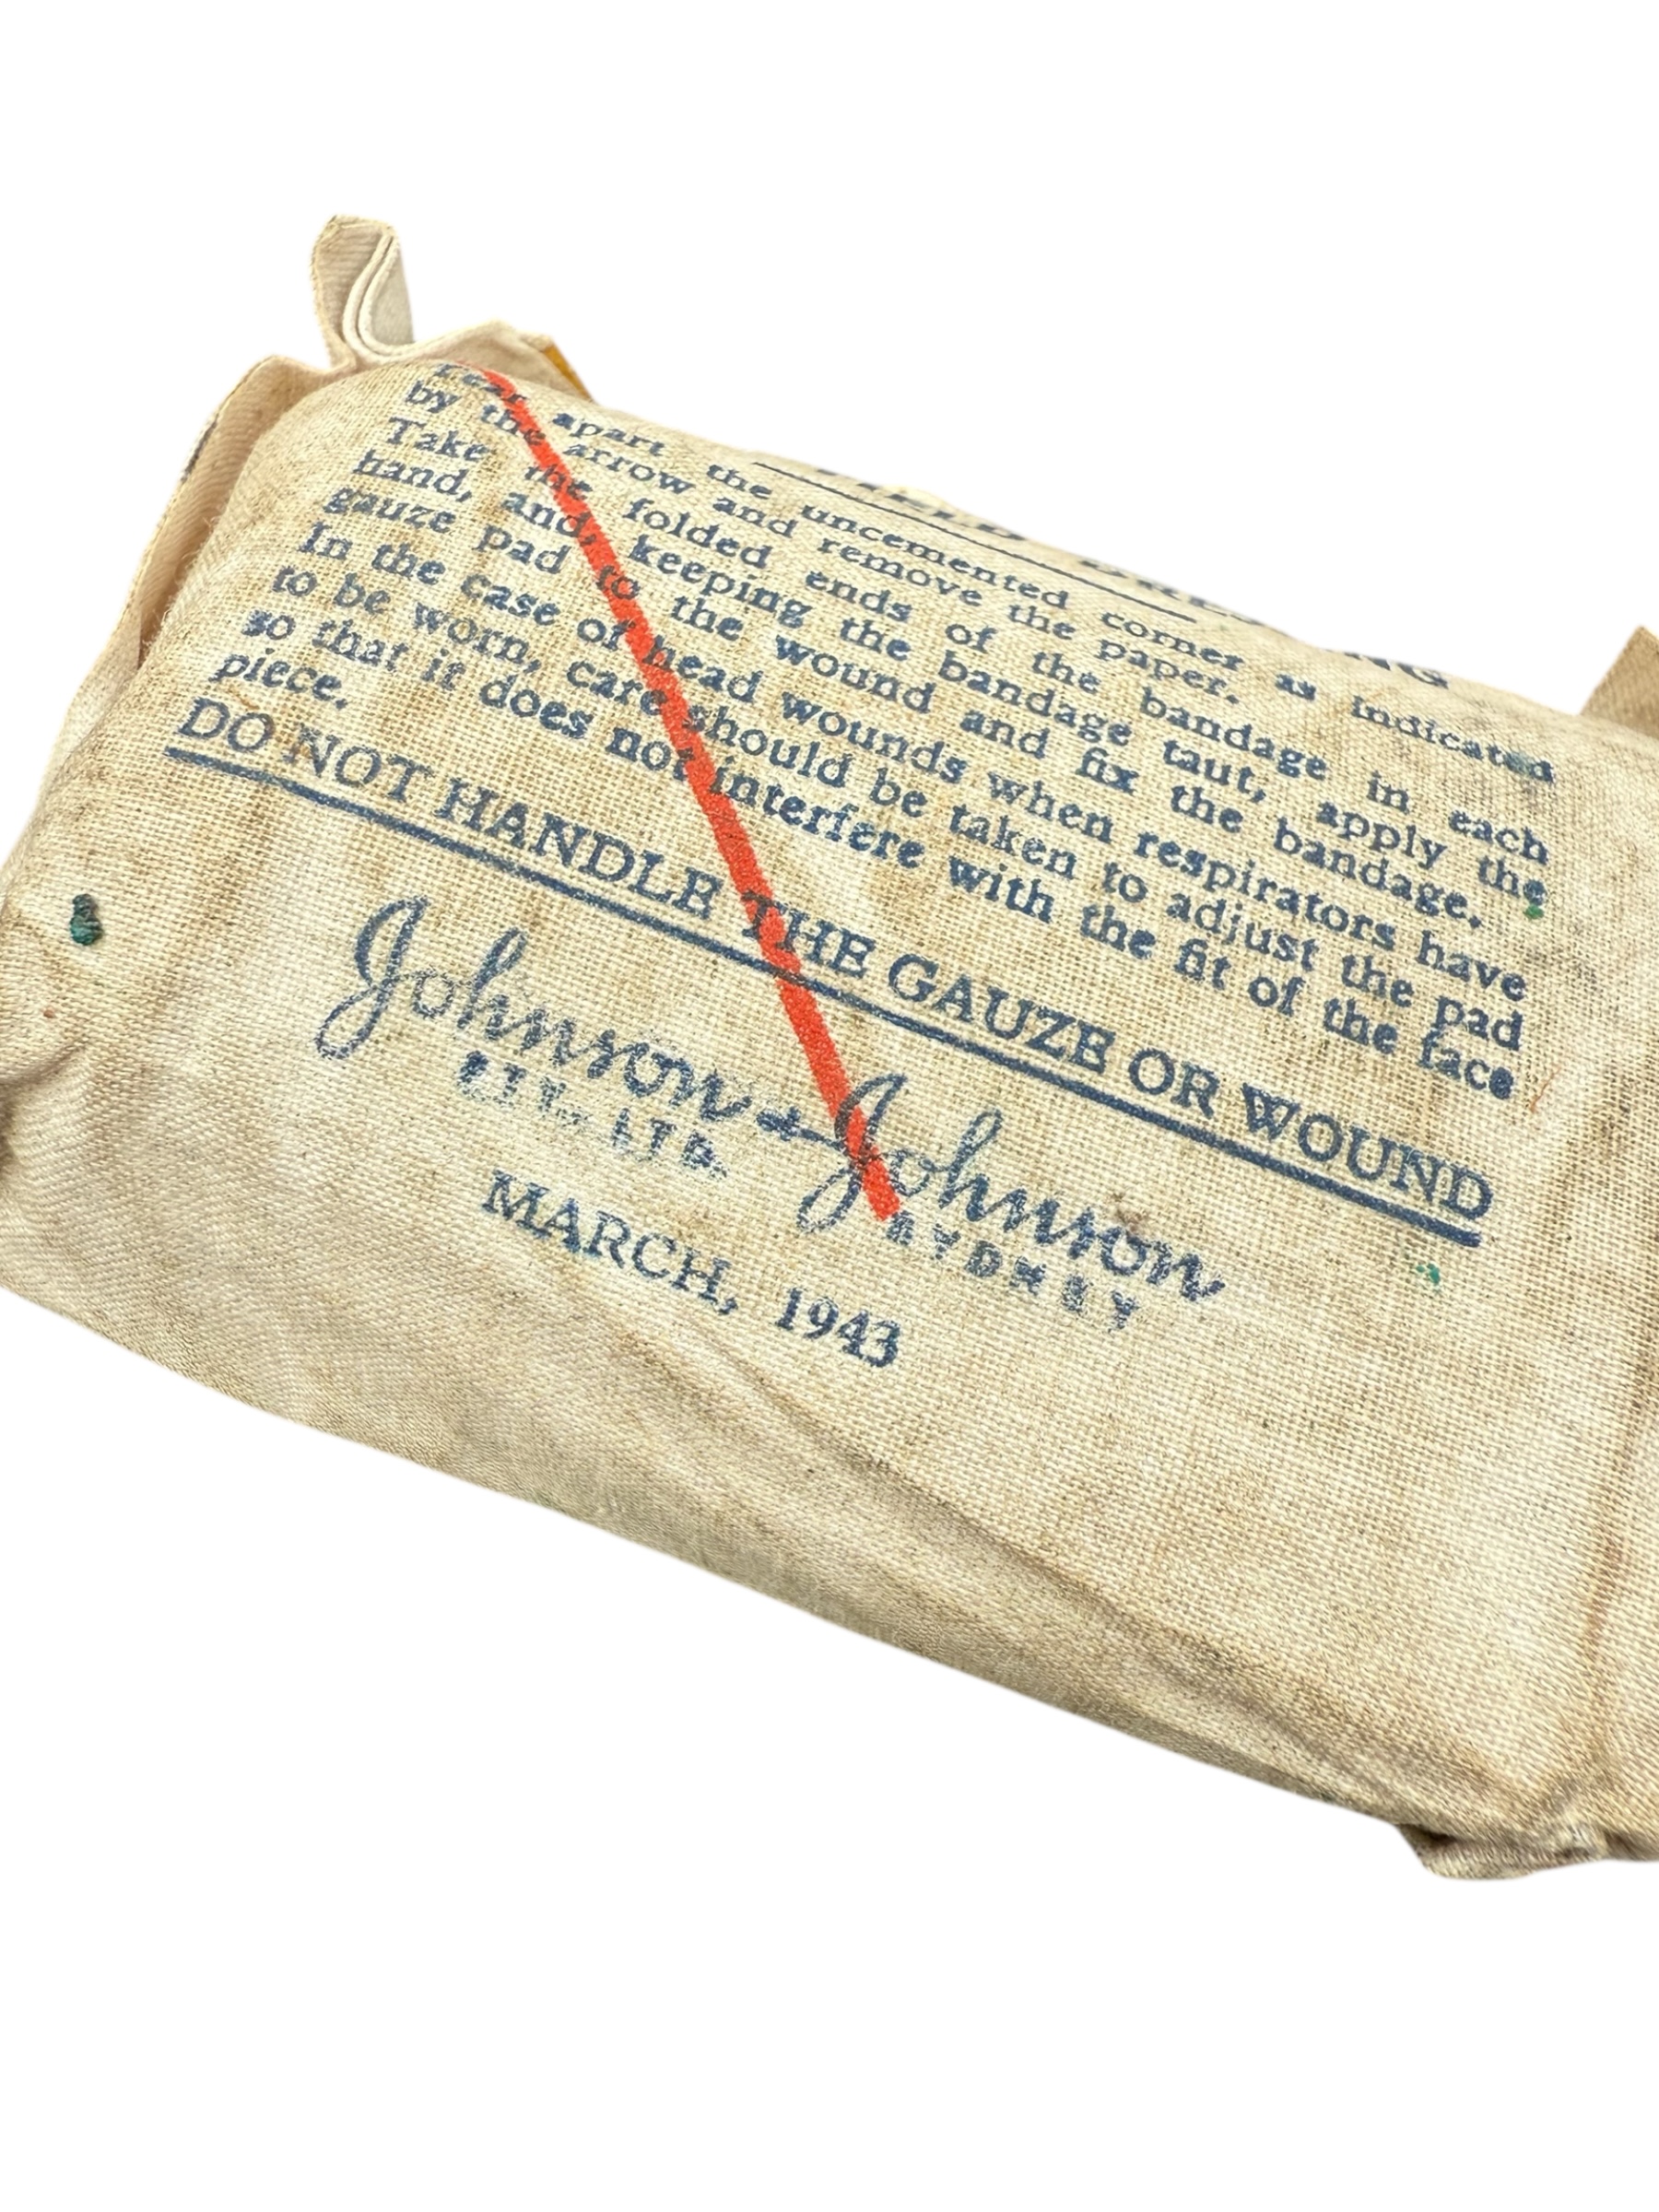 FIELD DRESSING
Tear apart the uncemented corner as indicated
by the arrow and remove the paper.
Take the folded ends of the bandage in each
hand, and, keeping the bandage taut, apply the
gauze pad to the wound and fix the bandage.
In the case of head wounds when respirators have
to be worn, care should be taken to adjust the pad
so that it does not interfere with the fit of the face
piece.
DO NOT HANDLE THE GAUZE OR WOUND
Johnson & Johnson
LTD. SYDNEY
MARCH, 1943